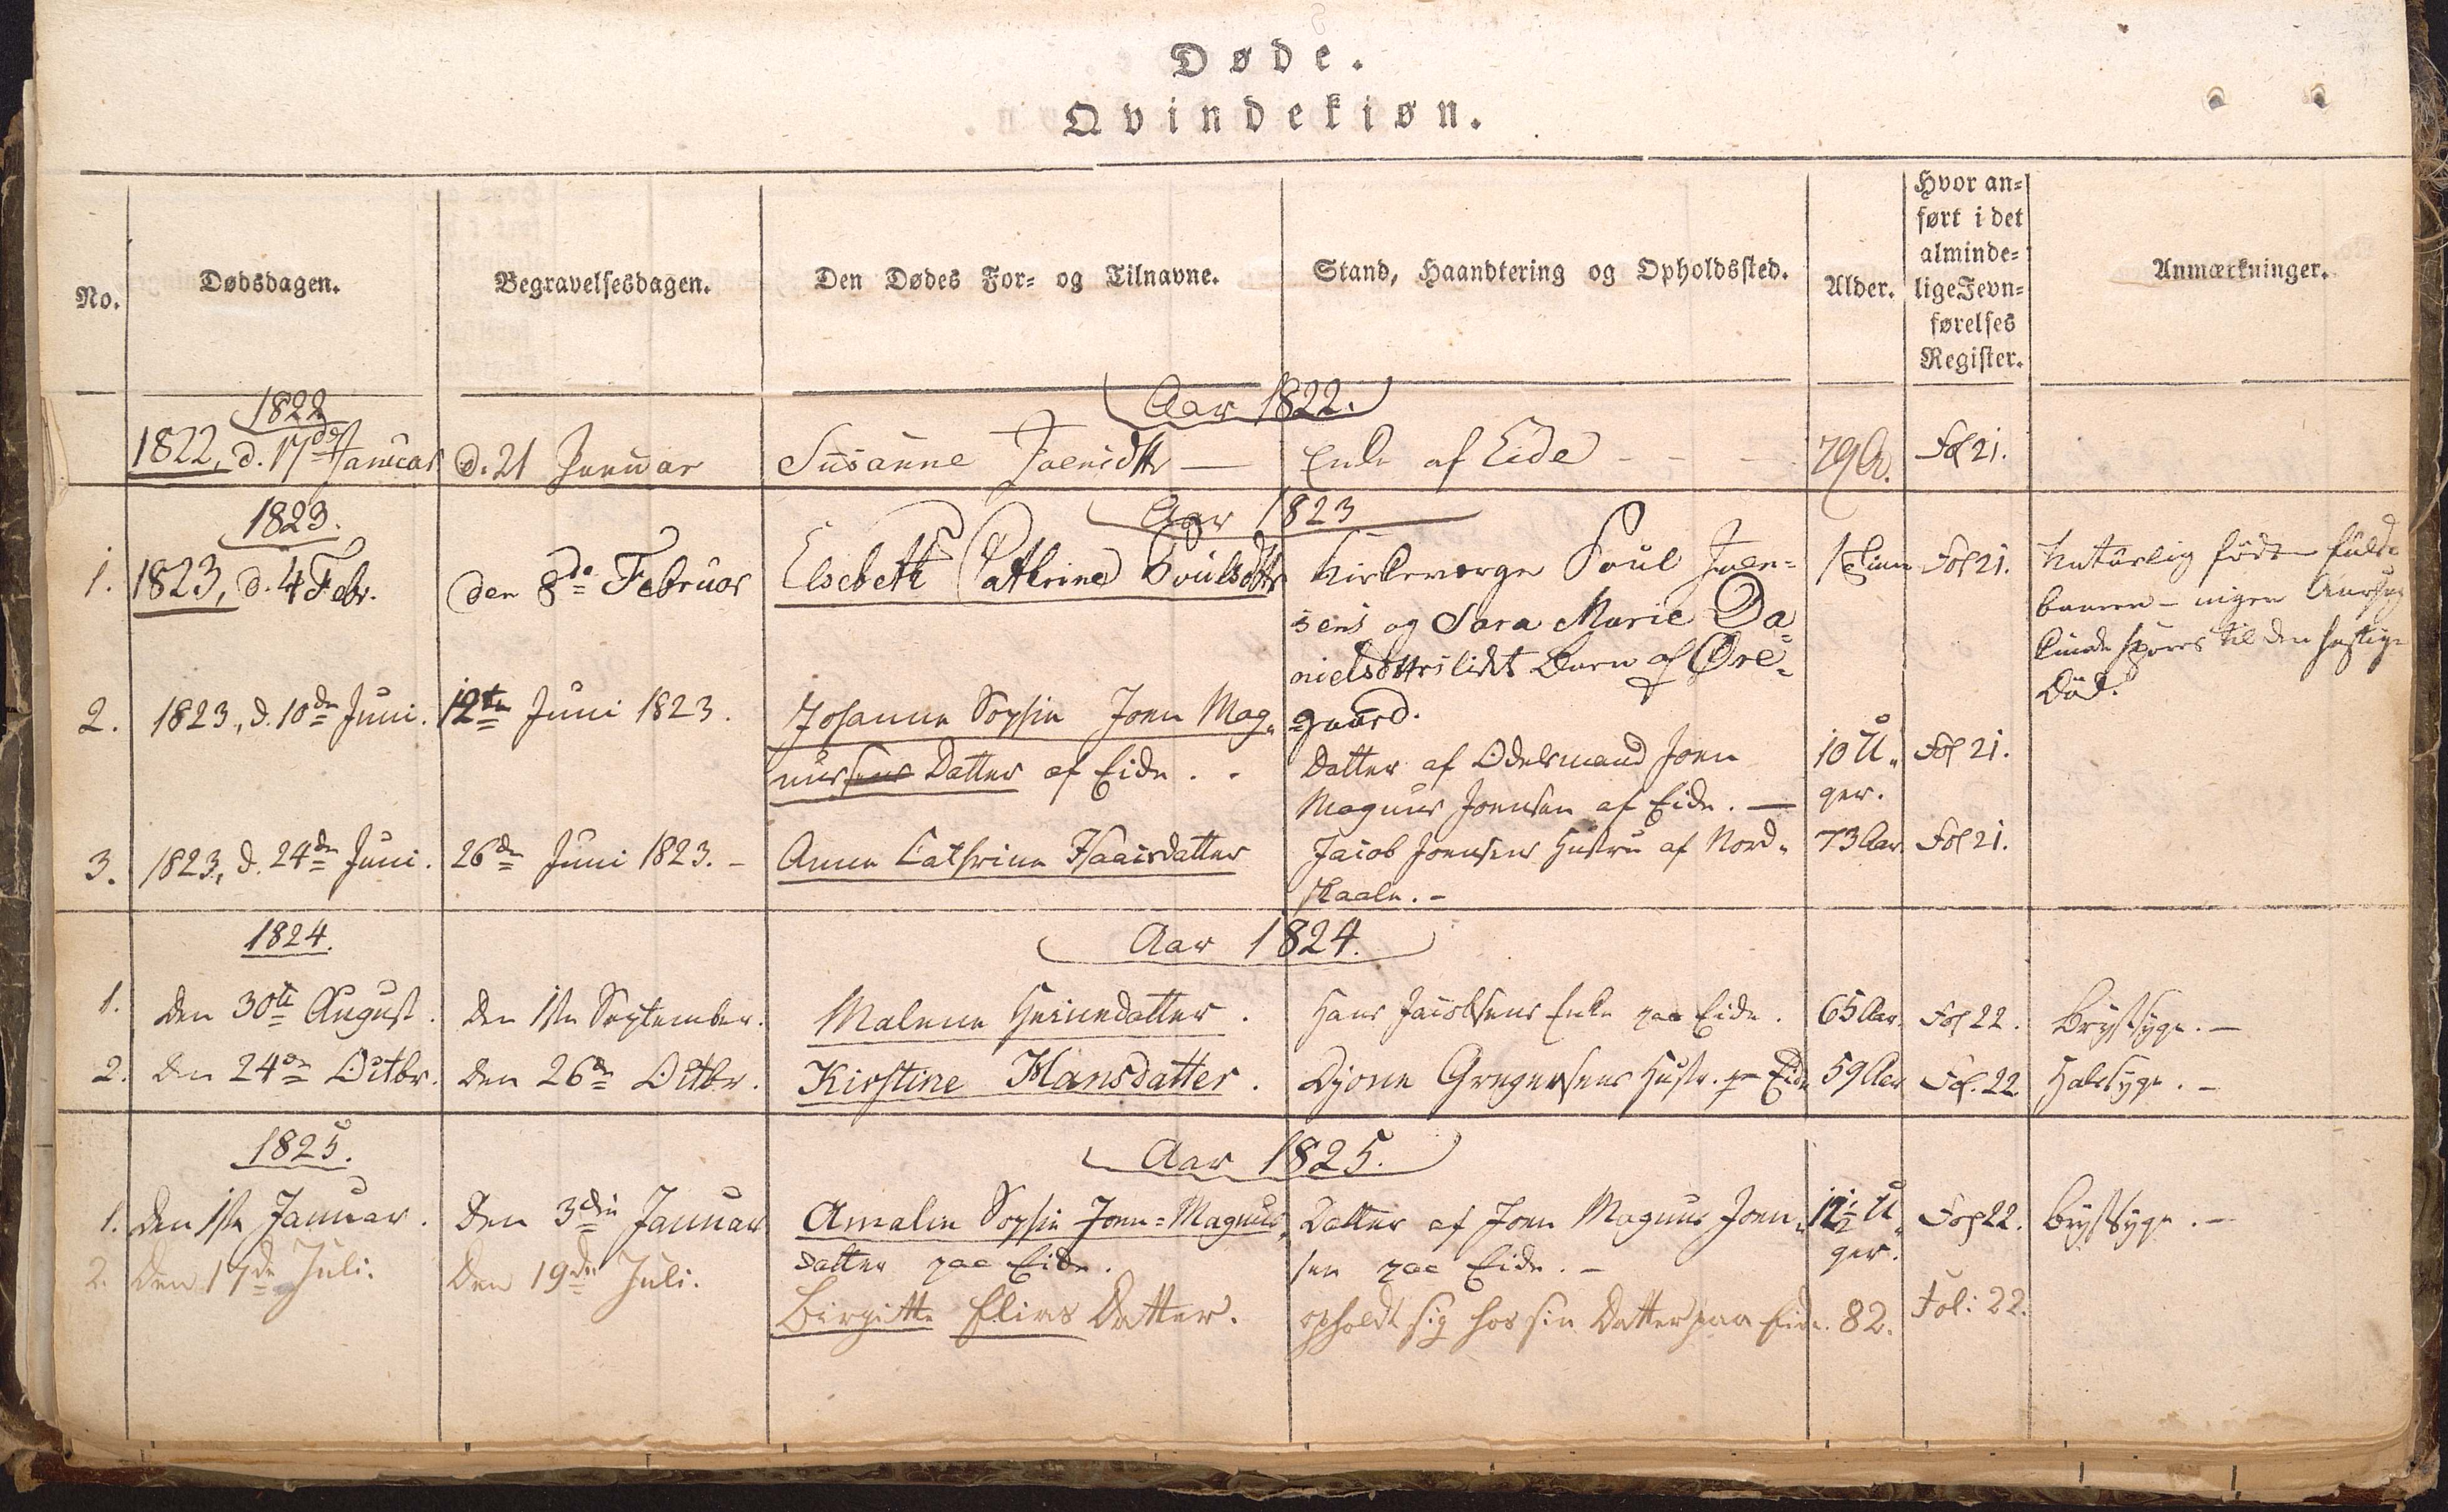 Døde.
Qvindekiøn.
No.
Dødsdagen.
Begravelsesdagen.
Den Dødes For= og Tilnavne.
Stand, Haandtering og Opholdssted.
Alder.
Hvor an=
ført i det
alminde=
lige Jevn=
førelses
Register.
Anmærkninger.
Aar 1822.
1822
1822, d. 17de Januar
d. 21 Januar
Susanne Joensdttr —
Enke af Eide - - -
79 Ar.
Fol 21.
Aar 1823
1823.
1.
1823, d. 4 Febr.
den 8de Februar
Elsebeth Cathrine Poulsdttr
Kirkeværge Poul Joen=
sens og Sara Marie Da=
nielsdttrs lidet Barn af Øre=
gaard.
1 Time
Fol 21.
Naturlig født
baaren - ingen Aarsag
kunde spores til den hastige
Død.
2.
1823, d. 10de Juni.
12te Juni 1823.
Johanne Sophie Joen Mag=
nussens Datter af Eide . -
Datter af Odelsmand Joen
Magnus Joensen af Eide. —
10 U=
ger.
Fol 21.
3.
1823, d. 24de Juni.
26de Juni 1823. -
Anne Cathrine Haaisdatter
Jacob Joensens Hustru af Nord=
skaale. -
73 Aar
Fol 21.
Aar 1824.
1824.
1.
den 30te August.
den 1ste September.
Malene Heinedatter.
Hans Jacobsens Enke paa Eide.
65 Aar.
Fol 22.
Brystsyge. —
2.
den 24de Octbr.
den 26de Octbr.
Kirstine Hansdatter.
Djone Gregersens Hustr. paa Eide
59 Aar
Fol. 22.
Halssyge. —
Aar 1825.
1825.
1.
den 1ste Januar.
den 3die Januar
Amalie Sophie Joen=Magnus=
datter paa Eide.
Datter af Joen Magnus Joen=
sen paa Eide. -
12½ U=
ger.
Fol 22.
Brystsyge. —
2.
Den 17de Juli.
Den 19de Juli.
Birgitte Elias Datter.
opholdt sig hos sin Datter paa Eide.
82.
Fol: 22.